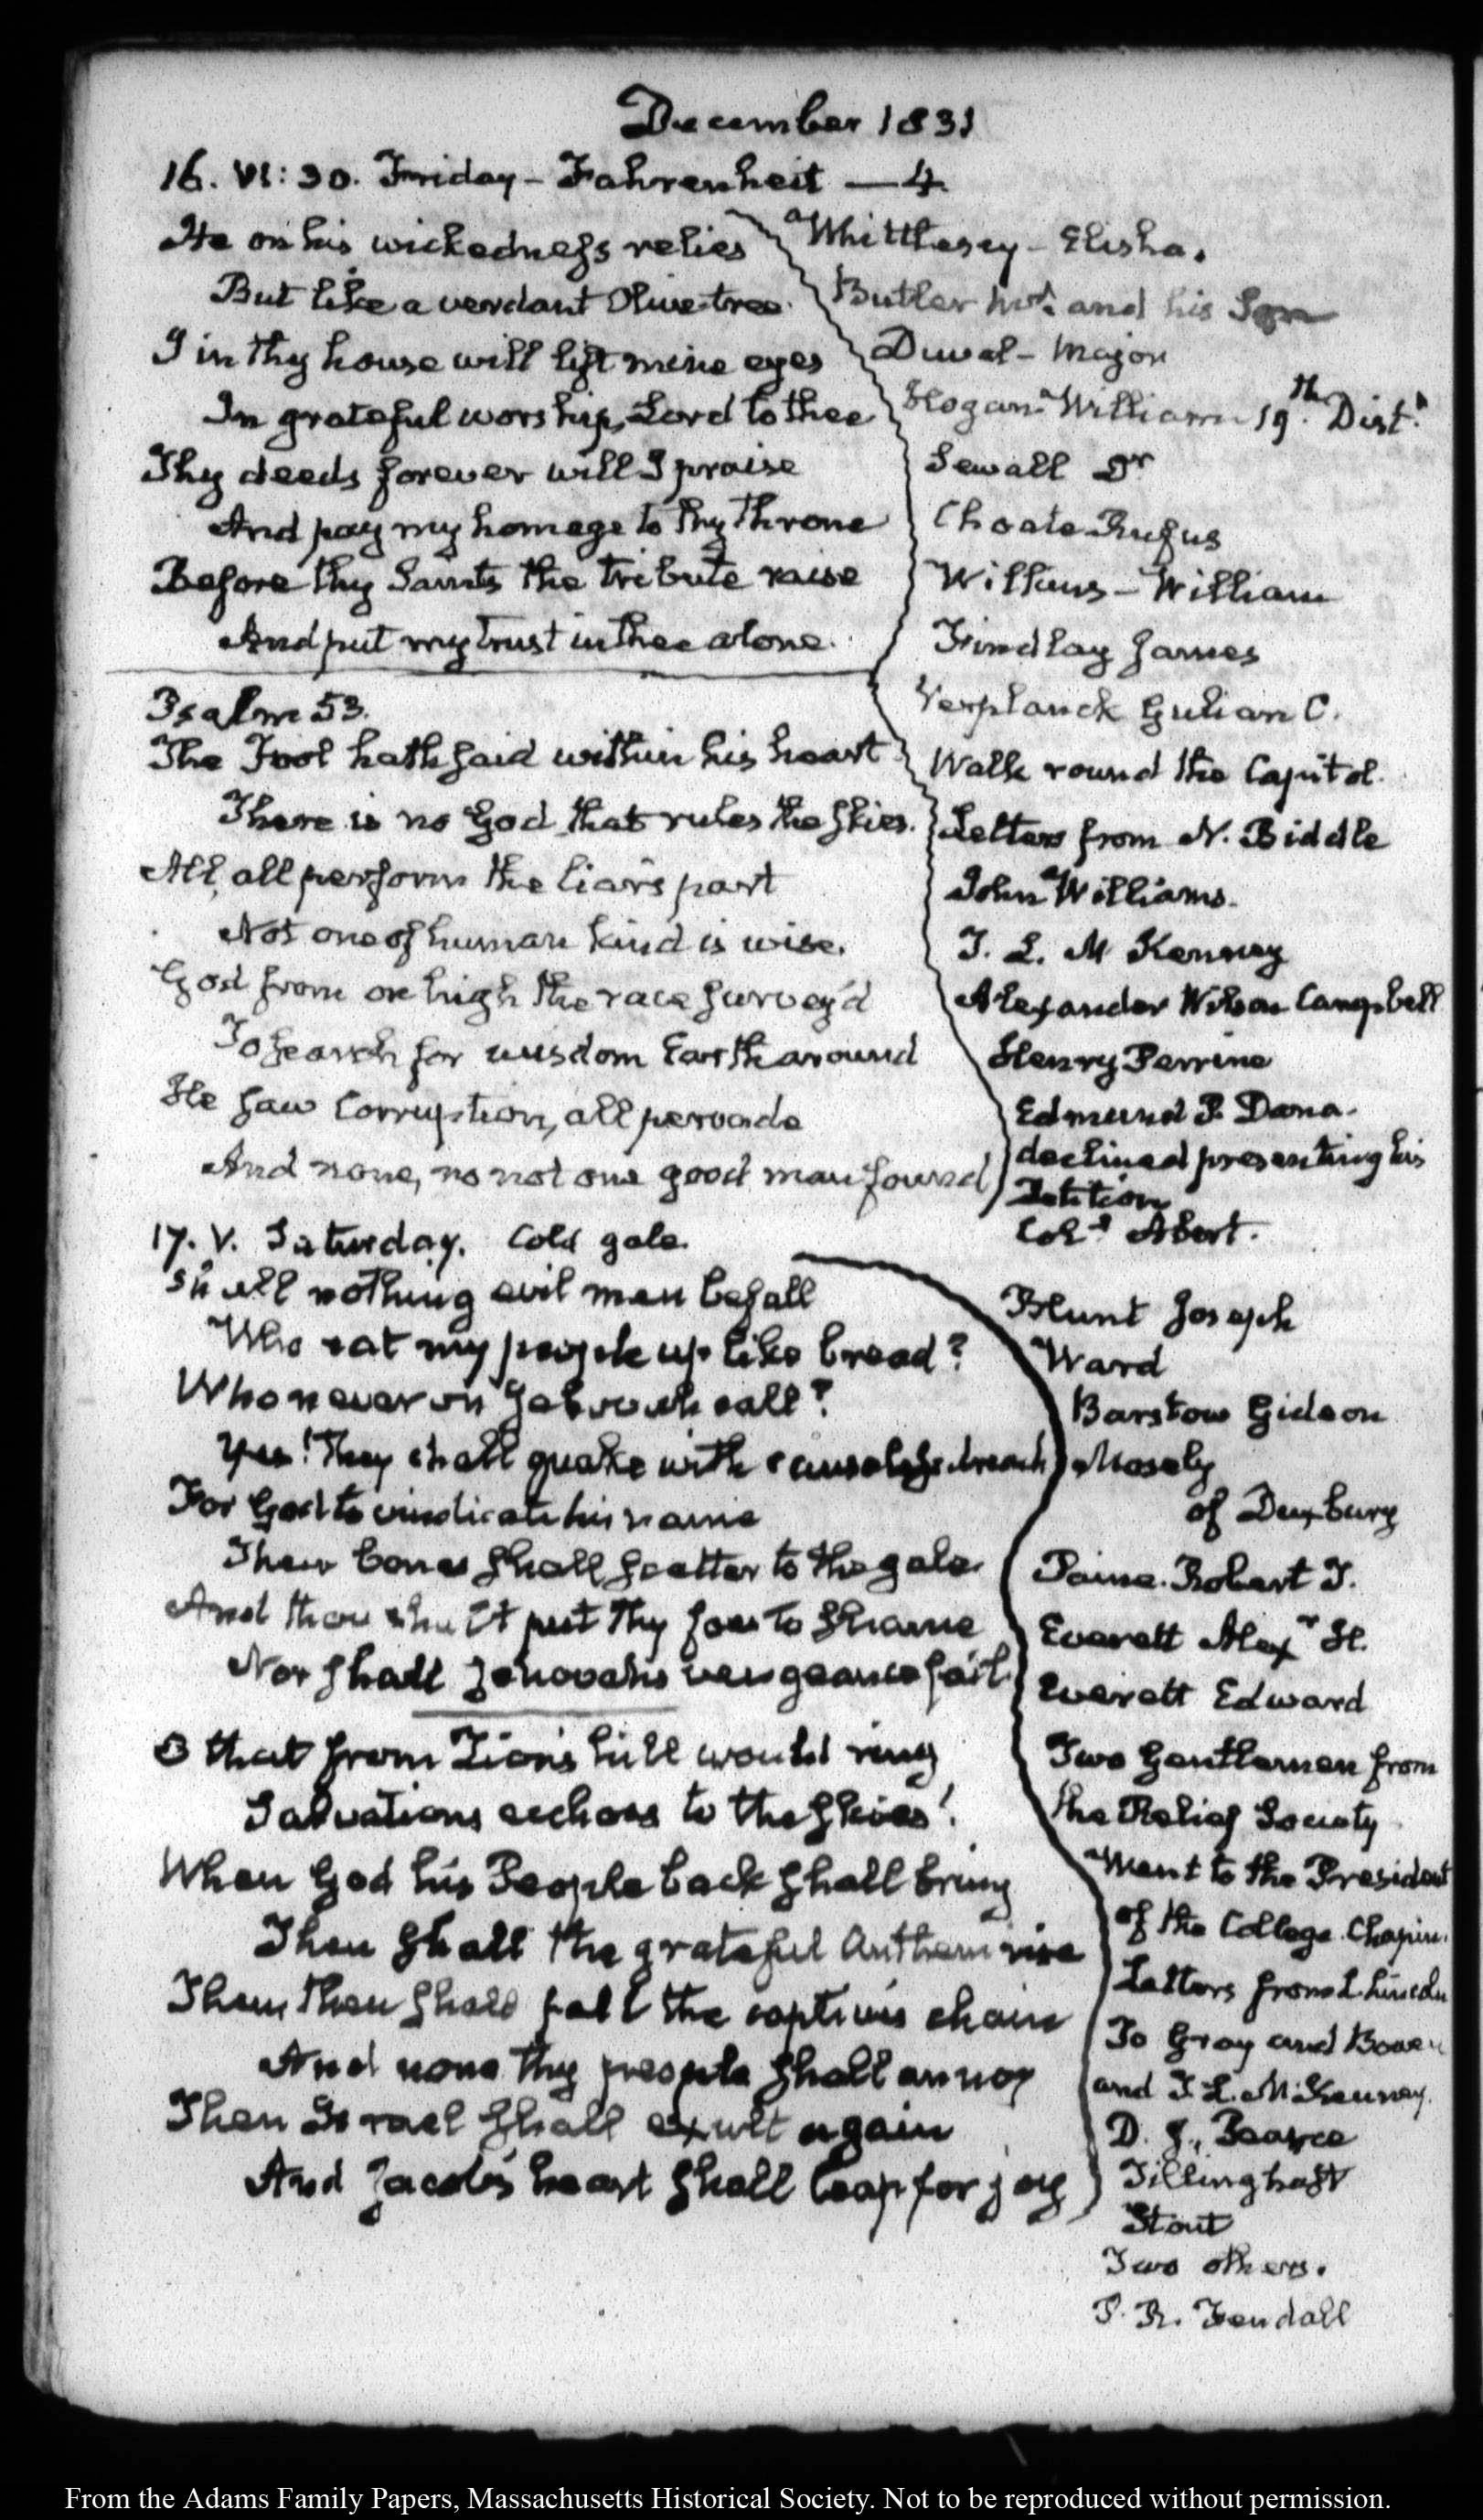 December 1831
16. VI: 30. Friday - Fahrenheit — 4.
He on his wickedness relies
But like a verdant Olive tree.
I in thy house will lift mine eyes
In grateful worship, Lord to thee
Thy deeds forever will I praise
And pay my homage to thy Throne
Before thy Saints the tribute raise
And put my trust in thee alone.
Psalm 53.
The Fool hath said within his heart
There is no God that rules the skies.
All, all perform the liar's part
Not one of human kind is wise.
God from on high the race survey'd
To search for wisdom Earth around
He saw Corruption, all pervade
And none, no not one good man found
Whittlesey - Elisha.
Butler Wm. and his Son
Duval - Major
Hogan - William 19th. Dist.
Sewall Dr
Choate Rufus
Wilkins - William
Findlay James
Verplanck Gulian C.
Walk round the Capitol.
Letters from N. Biddle
John Williams.
T. L. McKenney
Alexander Wilson Campbell
Henry Perrine
Edmund P. Dana.
declined presenting his
Petition
Coll Abert.
17. V. Saturday. Cold gale.
Shall nothing evil men befall
Who eat my people up like bread?
Who never on Jehovah call?
Yes! They shall quake with causeless dread
For God to vindicate his name
Their bones shall scatter to the gale.
And thou shalt put thy foes to shame
Nor shall Jehovah's vengeance fail.
O that from Zion's hill would ring
Salvations echoes to the skies!
When God his People back shall bring
Then shall the grateful Anthem rise
Then, then shall fall the captive's chain
And none thy people shall annoy
Then Israel shall exult again
And Jacob's heart shall leap for joy
Blunt Joseph
Ward
Barstow Gideon
Mosely
of Duxbury
Paine. Robert T.
Everett Alexr H.
Everett Edward
Two Gentlemen from
the Relief Society
Went to the President
of the College. Chapin.
Letters from L. Lincoln
To Gray and Bowen
and T. L. McKenney.
D. J. Pearce
Tillinghast
Stout
Two others.
P. R. Fendall
From the Adams Family Papers, Massachusetts Historical Society. Not to be reproduced without permission.